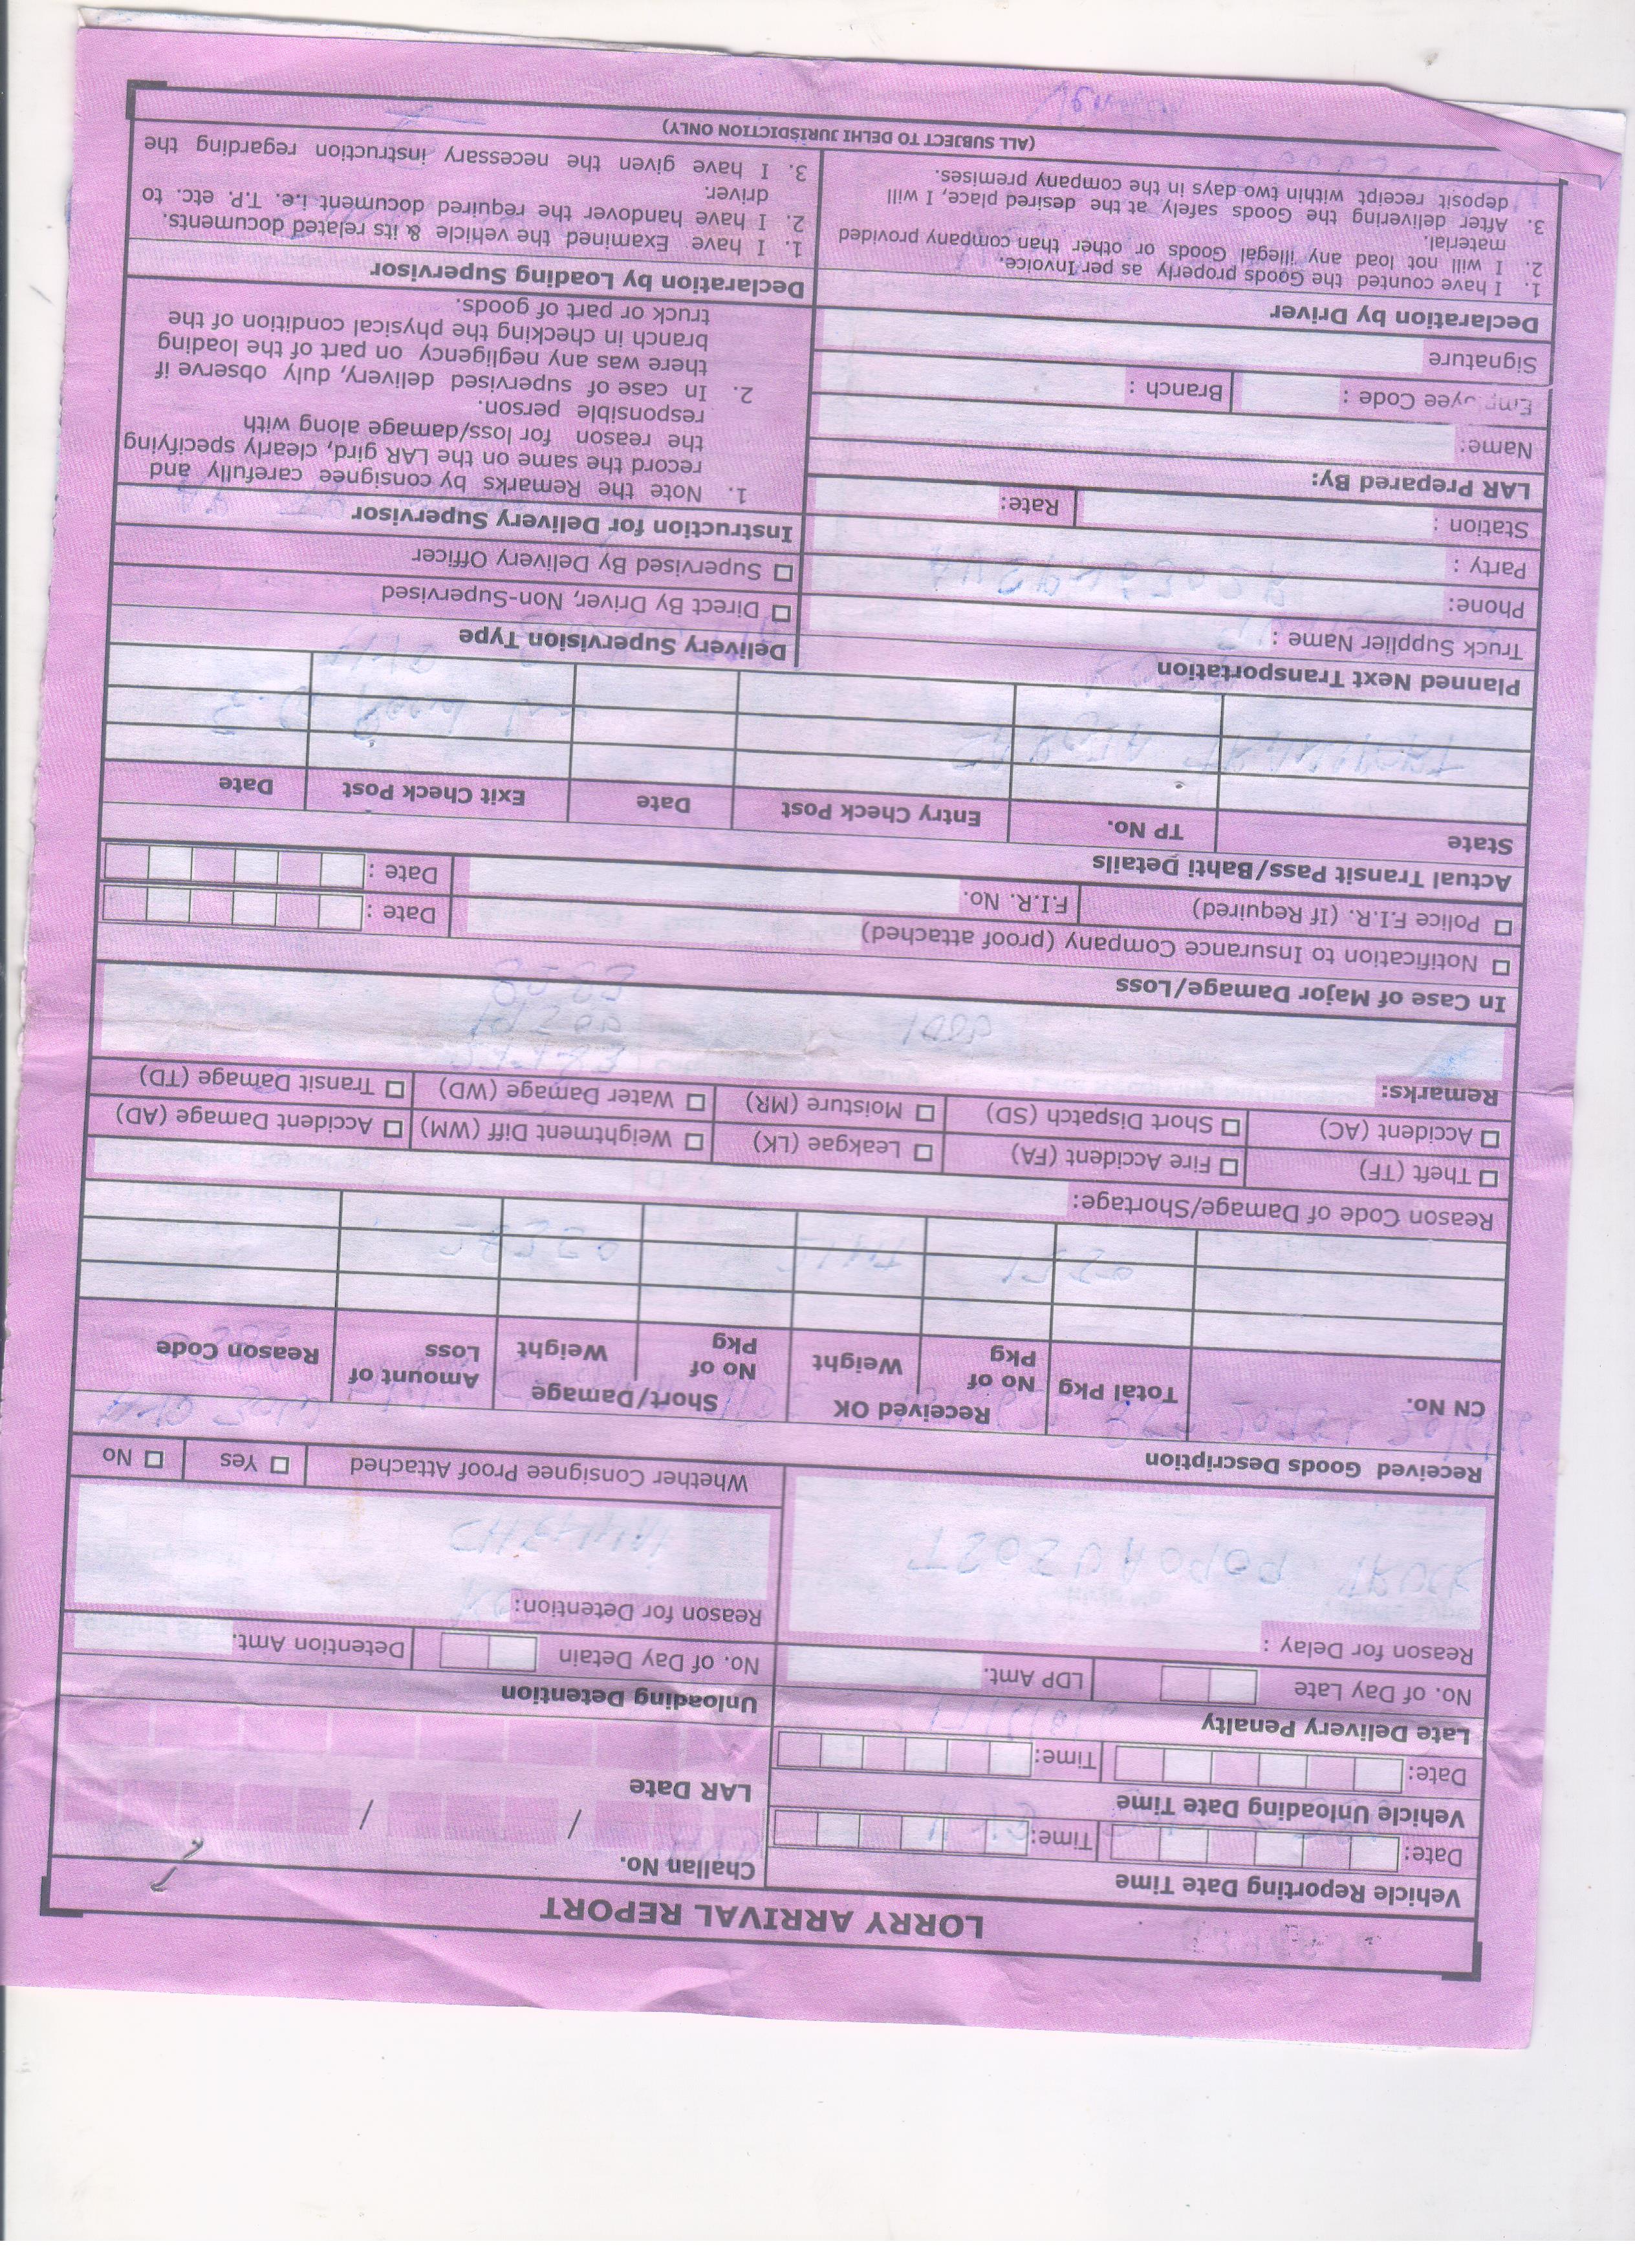 LORRY ARRIVAL REPORT
Vehicle Reporting Date Time
Challan No.
Date:
Time:
/ /
Vehicle Unloading Date Time
LAR Date
Date:
Time:
Late Delivery Penalty
Unloading Detention
No. of Day Late
LDP Amt.
No. of Day Detain
Detention Amt.
Reason for Delay :
Reason for Detention:
Whether Consignee Proof Attached
Yes
No
Received Goods Description
CN No.
Total Pkg
Received OK
No of Pkg
Weight
Short/Damage
No of Pkg
Weight
Amount of Loss
Reason Code
Reason Code of Damage/Shortage:
Theft (TF)
Fire Accident (FA)
Leakgae (LK)
Weightment Diff (WM)
Accident Damage (AD)
Accident (AC)
Short Dispatch (SD)
Moisture (MR)
Water Damage (WD)
Transit Damage (TD)
Remarks:
In Case of Major Damage/Loss
Notification to Insurance Company (proof attached)
Date :
Police F.I.R. (If Required)
F.I.R. No.
Date :
Actual Transit Pass/Bahti Details
State
TP No.
Entry Check Post
Date
Exit Check Post
Date
Planned Next Transportation
Truck Supplier Name :
Phone:
Party :
Station :
Rate:
LAR Prepared By:
Name:
Employee Code :
Branch :
Signature
Declaration by Driver
1. I have counted the Goods properly as per Invoice.
2. I will not load any illegal Goods or other than company provided
material.
3. After delivering the Goods safely at the desired place, I will
deposit receipt within two days in the company premises.
Delivery Supervision Type
Direct By Driver, Non-Supervised
Supervised By Delivery Officer
Instruction for Delivery Supervisor
1. Note the Remarks by consignee carefully and
record the same on the LAR gird, clearly specifying
the reason for loss/damage along with
responsible person.
2. In case of supervised delivery, duly observe if
there was any negligency on part of the loading
branch in checking the physical condition of the
truck or part of goods.
Declaration by Loading Supervisor
1. I have Examined the vehicle & its related documents.
2. I have handover the required document i.e. T.P. etc. to
driver.
3. I have given the necessary instruction regarding the
(ALL SUBJECT TO DELHI JURISDICTION ONLY)